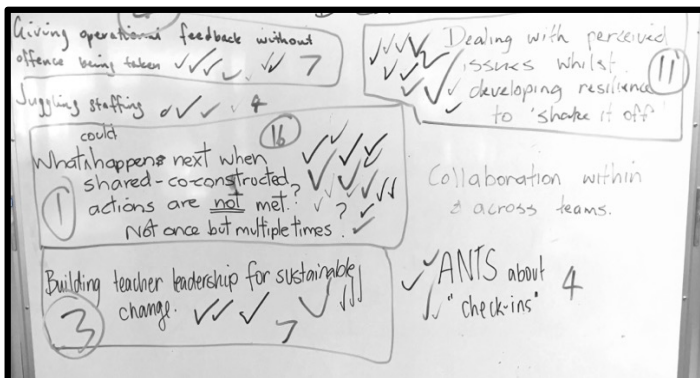 Giving operational feedback without
offence being taken ✓✓✓✓✓✓ 7
Juggling staffing ✓✓✓✓ 4
could
What^happens next when
shared-co-constructed
actions are not met?
Not once but multiple times.
16
1
Building teacher leadership for sustainable
change. ✓✓✓✓✓✓✓ 7
3
Dealing with perceived
issues whilst
developing resilience
to 'shake it off'
11
Collaboration within
& across teams.
✓✓ANTS about
✓✓"check-ins" 4